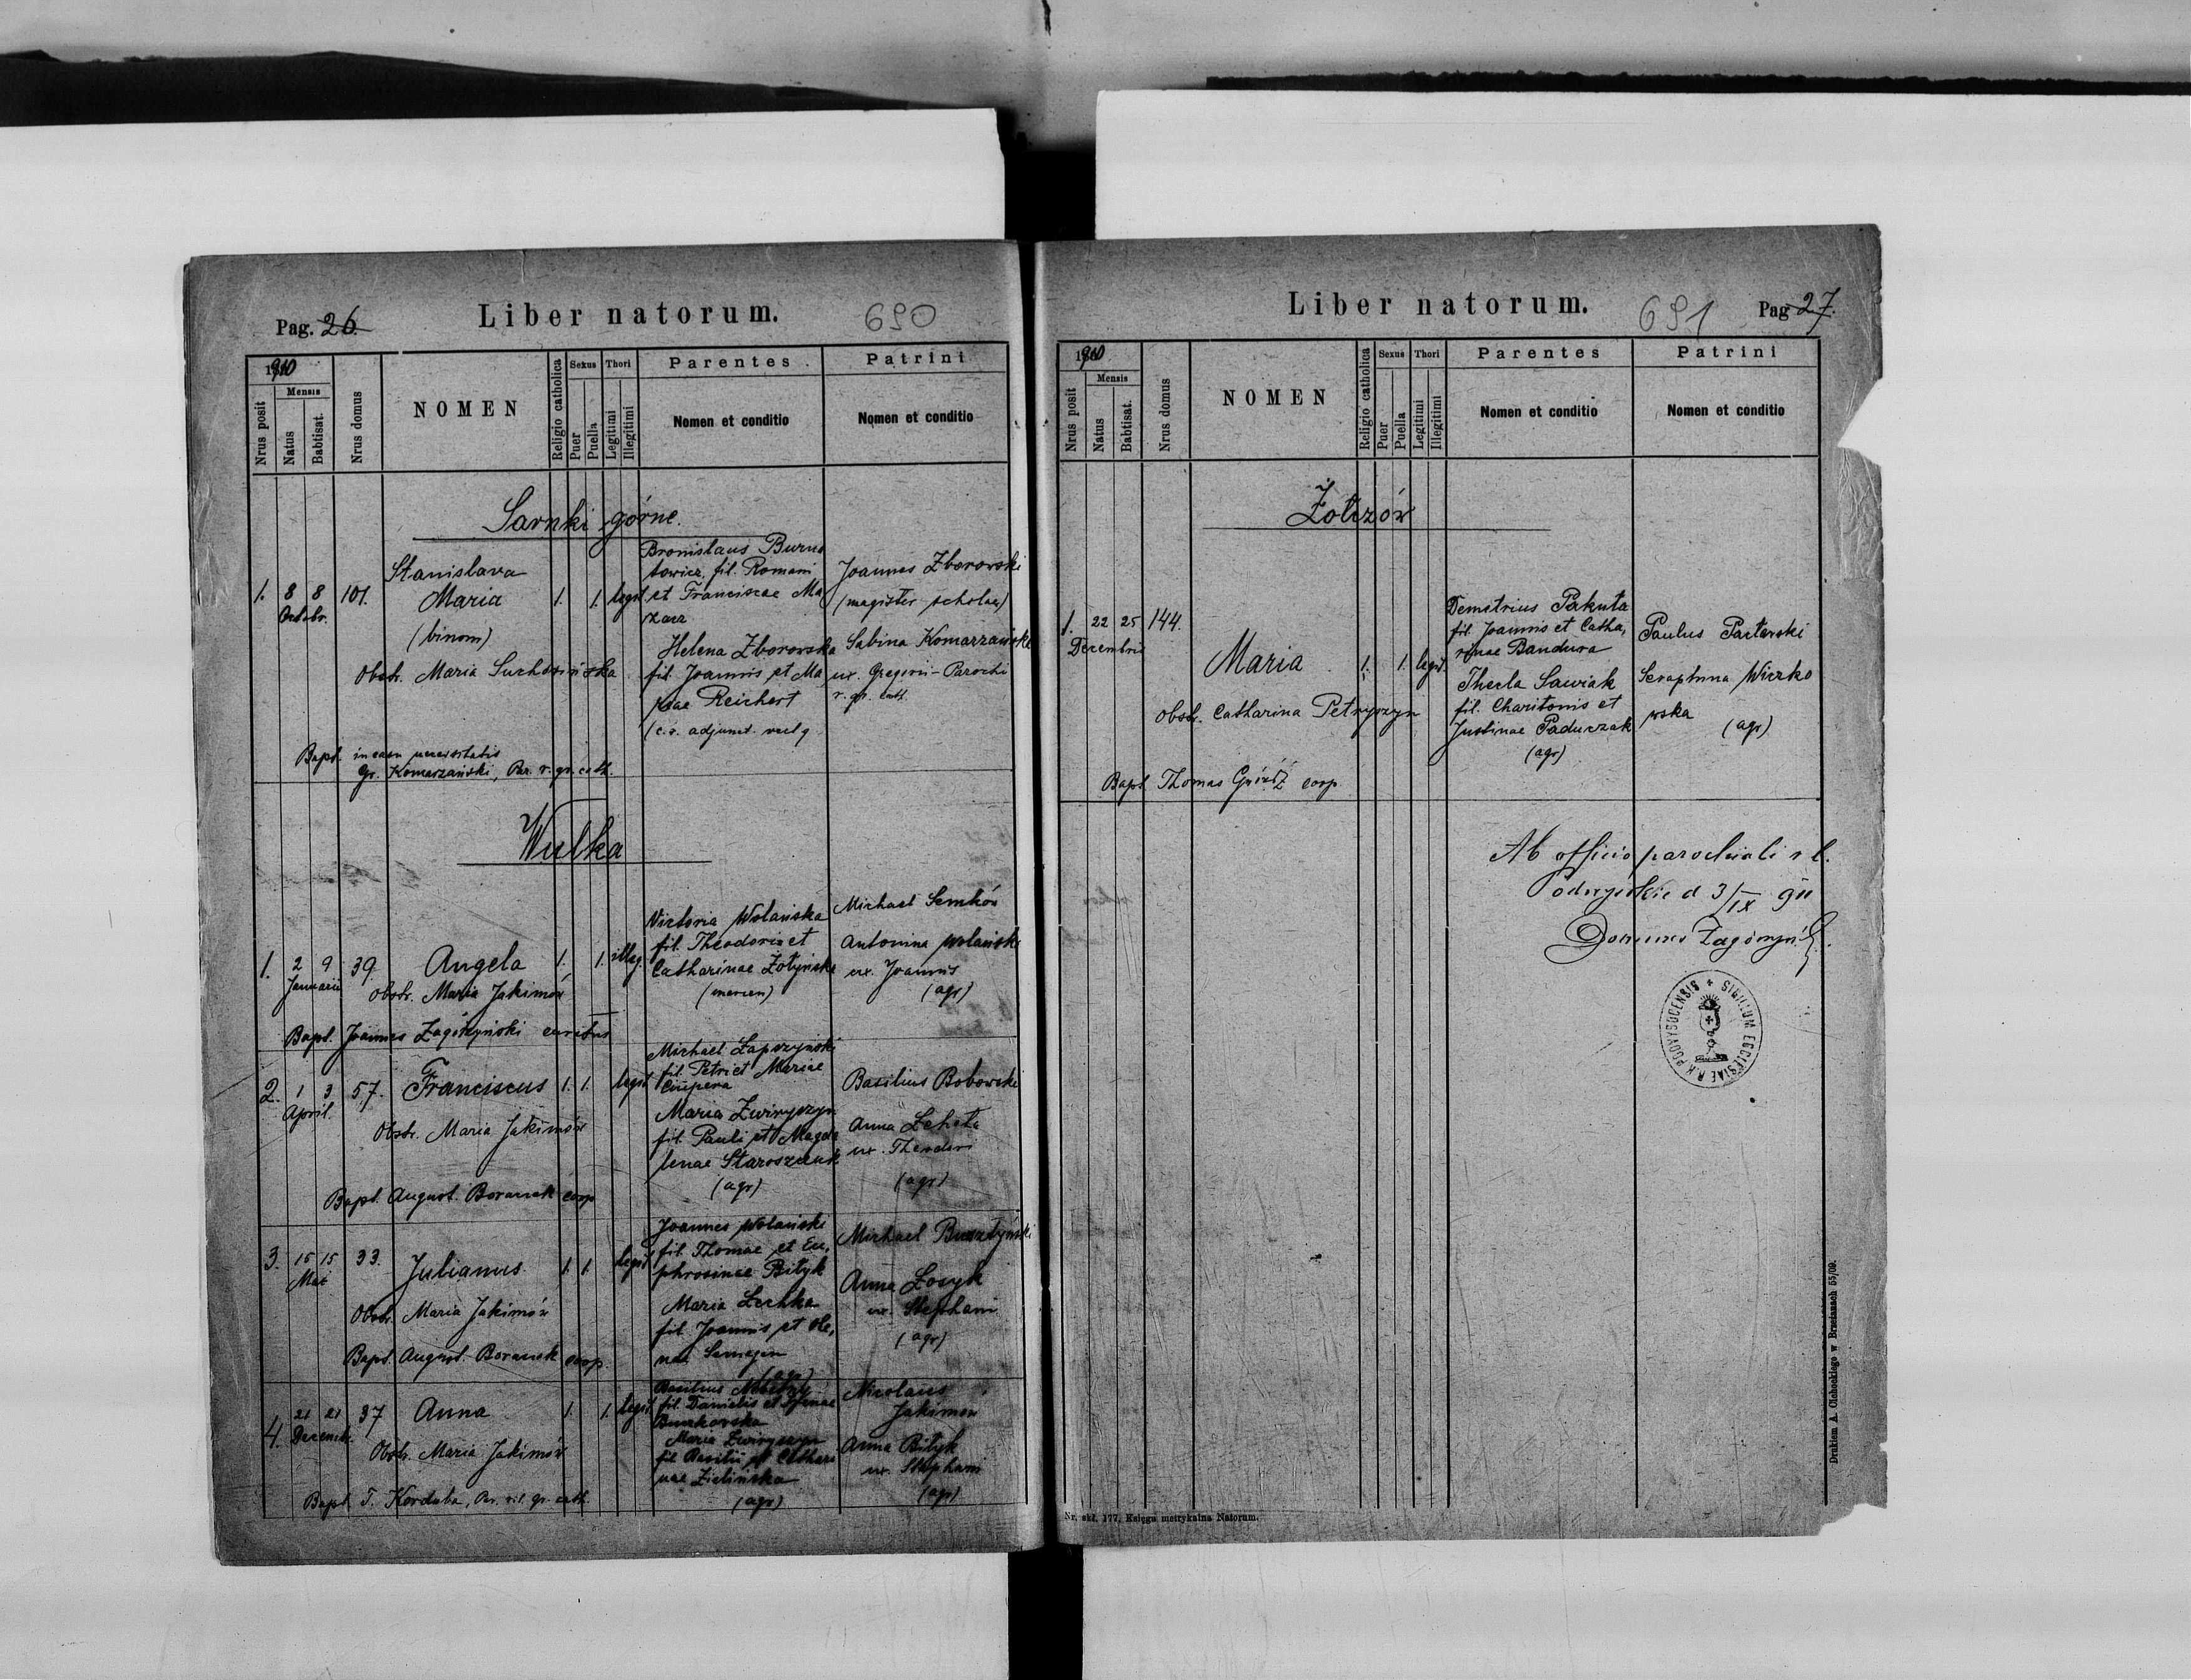 Pag. 26.
Liber natorum.
690
1910
Nrus posit
Mensis
Natus
Babtisat.
Nrus domus
NOMEN
Religio catholica
Sexus
Puer
Puella
Thori
Legitimi
Illegitimi
Parentes
Nomen et conditio
Patrini
Nomen et conditio
Sarnki górne.
1. 8 8 101.
Octobr.
Stanislava
Maria
(binom)
1. 1. legit
Obstr. Maria
Bronislaus Burno
towicz, fil. Romani
et Franciscae Ma
zarz
Helena Zborowska
fil. Joannis et Ma
riae Reichert
(c. r. adjunct.
Joannes Zborowski
(magister scholae)
Sabina Komarzańska
ux. Gregorii - Parochi
r. gr. cath.
Bapt. in casu necessitatis
Gr. Komarzański, Par. r. gr. cath.
Wulka
1. 2 9 39.
Januarii
Angela
1. 1. illeg.
Obstr. Maria Jakimów
Victoria Wolańska
fil. Theodori et
Catharinae Żołyńska
Michael Semków
Antonina Wolański
ux. Joannis
(agr)
Bapt. Joannes Zagórzyński curatus
2. 1 3 57.
April.
Franciscus
1. 1. legit
Obstr. Maria Jakimów
Michael Łapszyński
fil. Petri et Mariae
Ciupera
Maria Zwiryszyn
fil. Pauli et Magda
lenae Staroszczuk
(agr)
Basilius Bobowski
Anna Lechta
ux. Theodori
(agr)
Bapt. August. Boraczek coop.
3. 15 15 33.
Mai
Julianus
1. 1. legit
Obstr. Maria Jakimów
Bapt. August. Boraczek coop.
Joannes Wolański
fil. Thomae et Eu,
phrosinae Bityk
Maria Lechka
fil. Joannis et He,
nae
(agr)
Michael Bursztyński
Anna Łosyk
ux. Stephani
(agr)
4. 21 21 37
Decemb.
Anna
1. 1. legit.
Obstr. Maria Jakimów
Basilius
fil. Danielis et Irenae
Burkowska
Maria Zwiryszyn
fil. Basilii et Cathari
nae Zielińska
(agr)
Nicolaus
Jakimow
Anna Bityk
ux. Stephani
(agr)
Bapt. T. Korduba, Par. rit. gr. cath.
Liber natorum.
691
Pag 27.
1910
Nrus posit
Mensis
Natus
Babtisat.
Nrus domus
NOMEN
Religio catholica
Sexus
Puer
Puella
Thori
Legitimi
Illegitimi
Parentes
Nomen et conditio
Patrini
Nomen et conditio
Żołczów
1. 22 25 144.
Decembris
Maria
1. 1. legit.
Obstr. Catharina Petryszyn
Demetrius Pakuta
fil. Joannis et Catha,
rinae Bandura
Thecla Sawiak
fil. Charitonis et
Justinae Padurzak
(agr)
Paulus Pasterski
Seraphina Wiczko
wska
(agr)
Bapt. Thomas Gwóźdź coop.
Ab officio parochiali r. l.
Podwysokie d 3/IX 911
Joannes Zagórzyński
SIGILLUM ECCLESIAE R. K. PODVYSOCENSIS
Drukiem A. Cichockiego w Brzeżanach 55/09.
Nr. skł. 177. Księga metrykalna Natorum.